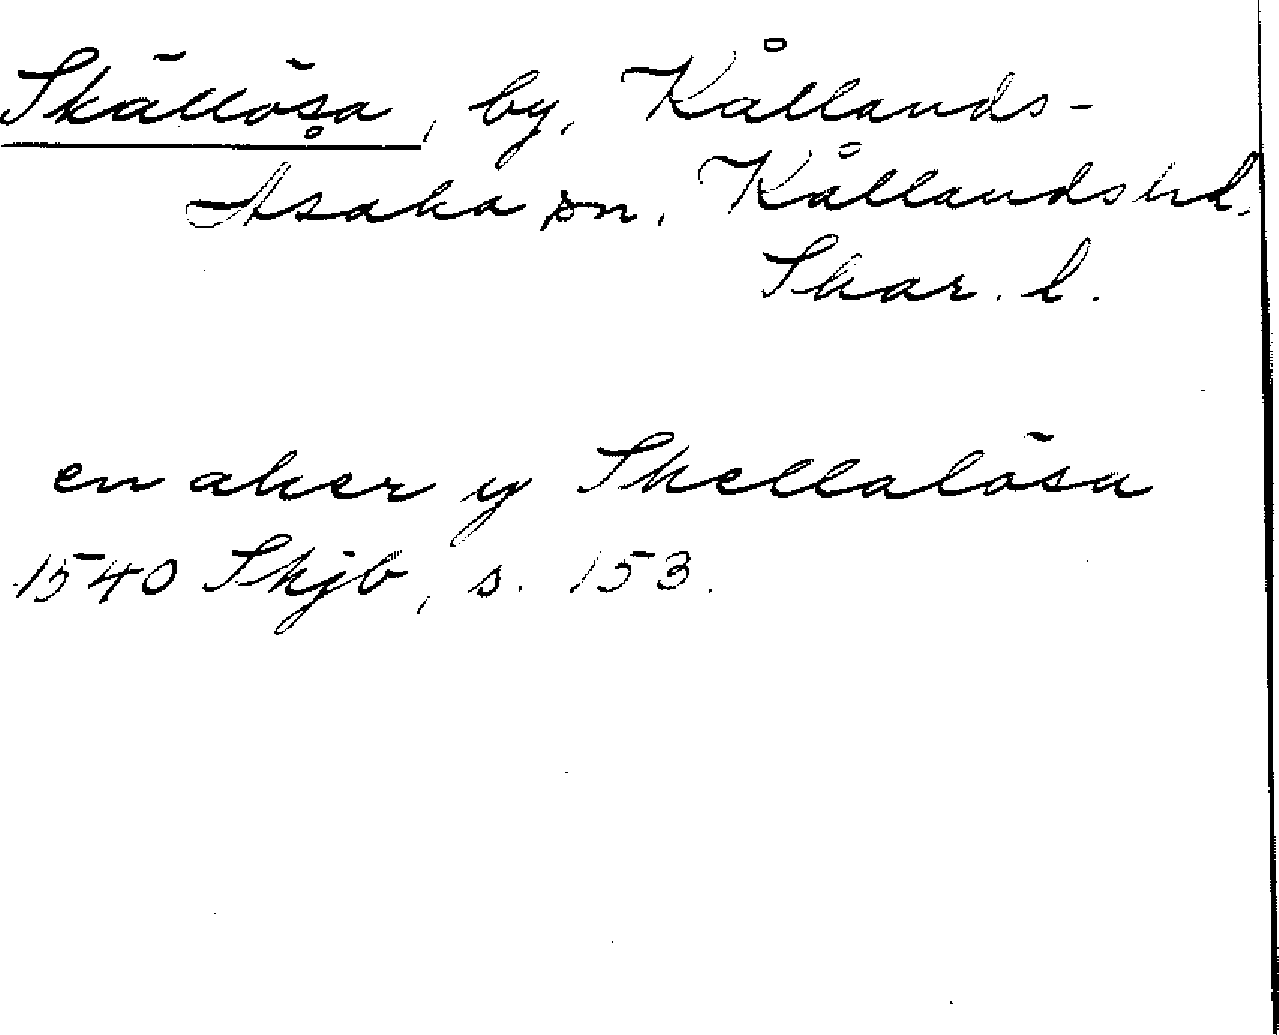 Skällösa, by, Kållands-
Asaka sn. Kållands hd.
Skar. l.
en aker y Skellalösa
1540 Skjb, s. 153.